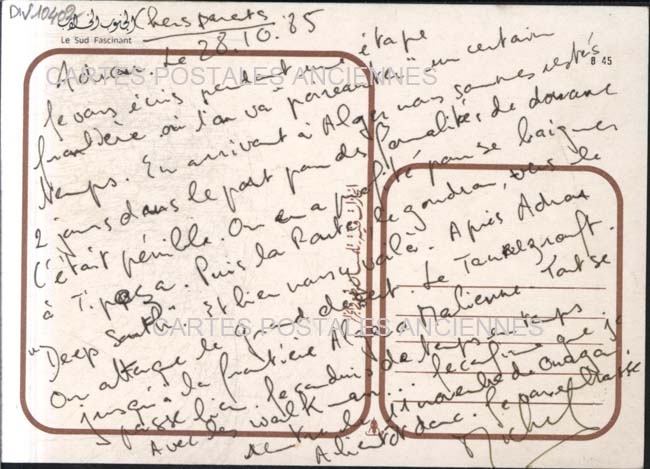 DIV10402
الجنوب الخلاب
Le Sud Fascinant
Chers parents
Adrar. Le 28.10.85
B 45
CARTES POSTALES ANCIENNES
Je vous écris pendant une étape
frontière où l'on va "paresser" un certain
temps. En arrivant à Alger nous sommes restés
2 jours dans le port pour des formalités de douane
C'était pénible. On en a profité pour se baigner
à Tipaza. Puis la Route, le goudron, vers le
"Deep South". Et bien nous y voilà. Après Adrar
On attaque le grand désert. Le Tanezrouft.
jusqu'à la frontière Algéro Malienne. Tout se
CARTES POSTALES ANCIENNES
passe bien. de temps en temps
Avec les walkman... que je
rentrerai 11 novembre de
A bientôt donc. Je
Michel